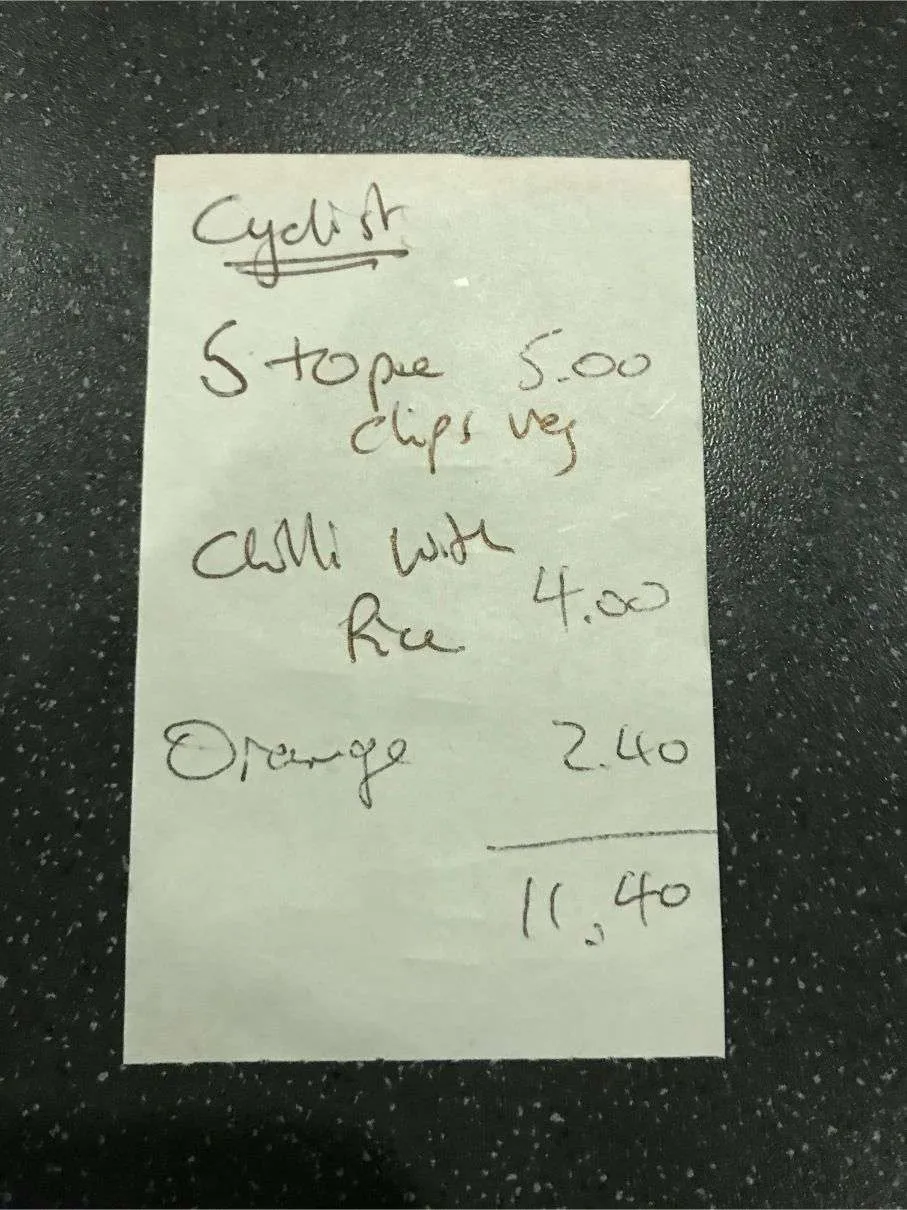 Cyclist
5 topee 5.00
chips veg
Chilli with
Rice 4.00
Orange 2.40
11.40